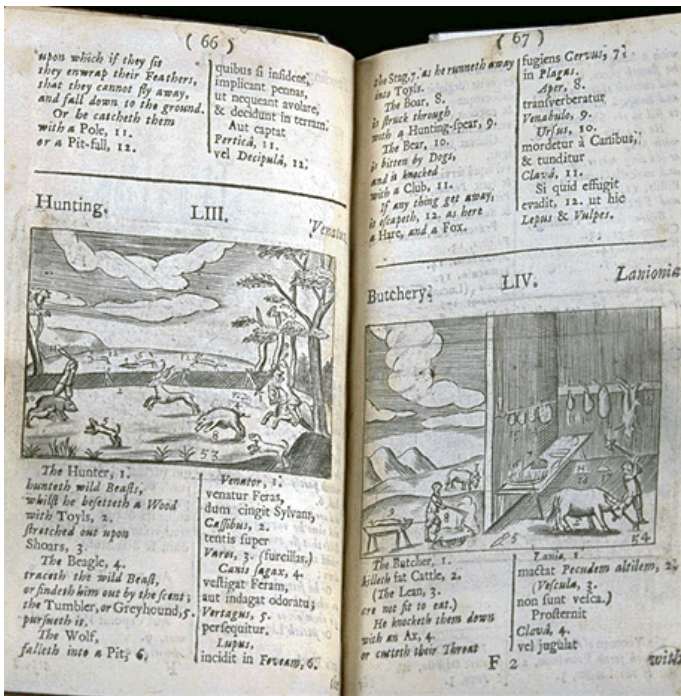 ( 66 )
upon which if they ſit
they enwrap their Feathers,
that they cannot fly away,
and fall down to the ground.
Or he catcheth them
with a Pole, 11.
or a Pit-fall, 12.
quibus ſi inſident,
implicant pennas,
ut nequeant avolare,
& decidunt in terram.
Aut captat
Perticâ, 11.
vel Decipulâ, 12.
Hunting. LIII. Venatus
53
The Hunter, 1.
hunteth wild Beaſts,
whilſt he beſetteth a Wood
with Toyls, 2.
ſtretched out upon
Shoars, 3.
The Beagle, 4.
traceth the wild Beaſt,
or findeth him out by the ſcent;
the Tumbler, or Greyhound, 5.
purſueth it.
The Wolf,
falleth into a Pit, 6.
Venator, 1.
venatur Feras,
dum cingit Sylvam,
Caſſibus, 2.
tentis ſuper
Varos, 3. (furcillas.)
Canis ſagax, 4.
veſtigat Feram,
aut indagat odoratu;
Vertagus, 5.
perſequitur.
Lupus,
incidit in Foveam, 6.
( 67 )
the Stag, 7. as he runneth away
into Toyls.
The Boar, 8.
is ſtruck through
with a Hunting-ſpear, 9.
The Bear, 10.
is bitten by Dogs,
and is knocked
with a Club, 11.
If any thing get away,
it eſcapeth, 12. as here
a Hare, and a Fox.
fugiens Cervus, 7.
in Plagas.
Aper, 8.
tranſverberatur
Venabulo, 9.
Urſus, 10.
mordetur à Canibus,
& tunditur
Clavâ, 11.
Si quid effugit
evadit, 12. ut hic
Lepus & Vulpes.
Butchery. LIV. Lanionia
54
The Butcher, 1.
killeth fat Cattle, 2.
(The Lean, 3.
are not fit to eat.)
He knocketh them down
with an Ax, 4.
or cutteth their Throat
Lanio, 1.
mactat Pecudem altilem, 2.
(Veſcula, 3.
non ſunt veſca.)
Proſternit
Clavâ, 4.
vel jugulat
F 2
with